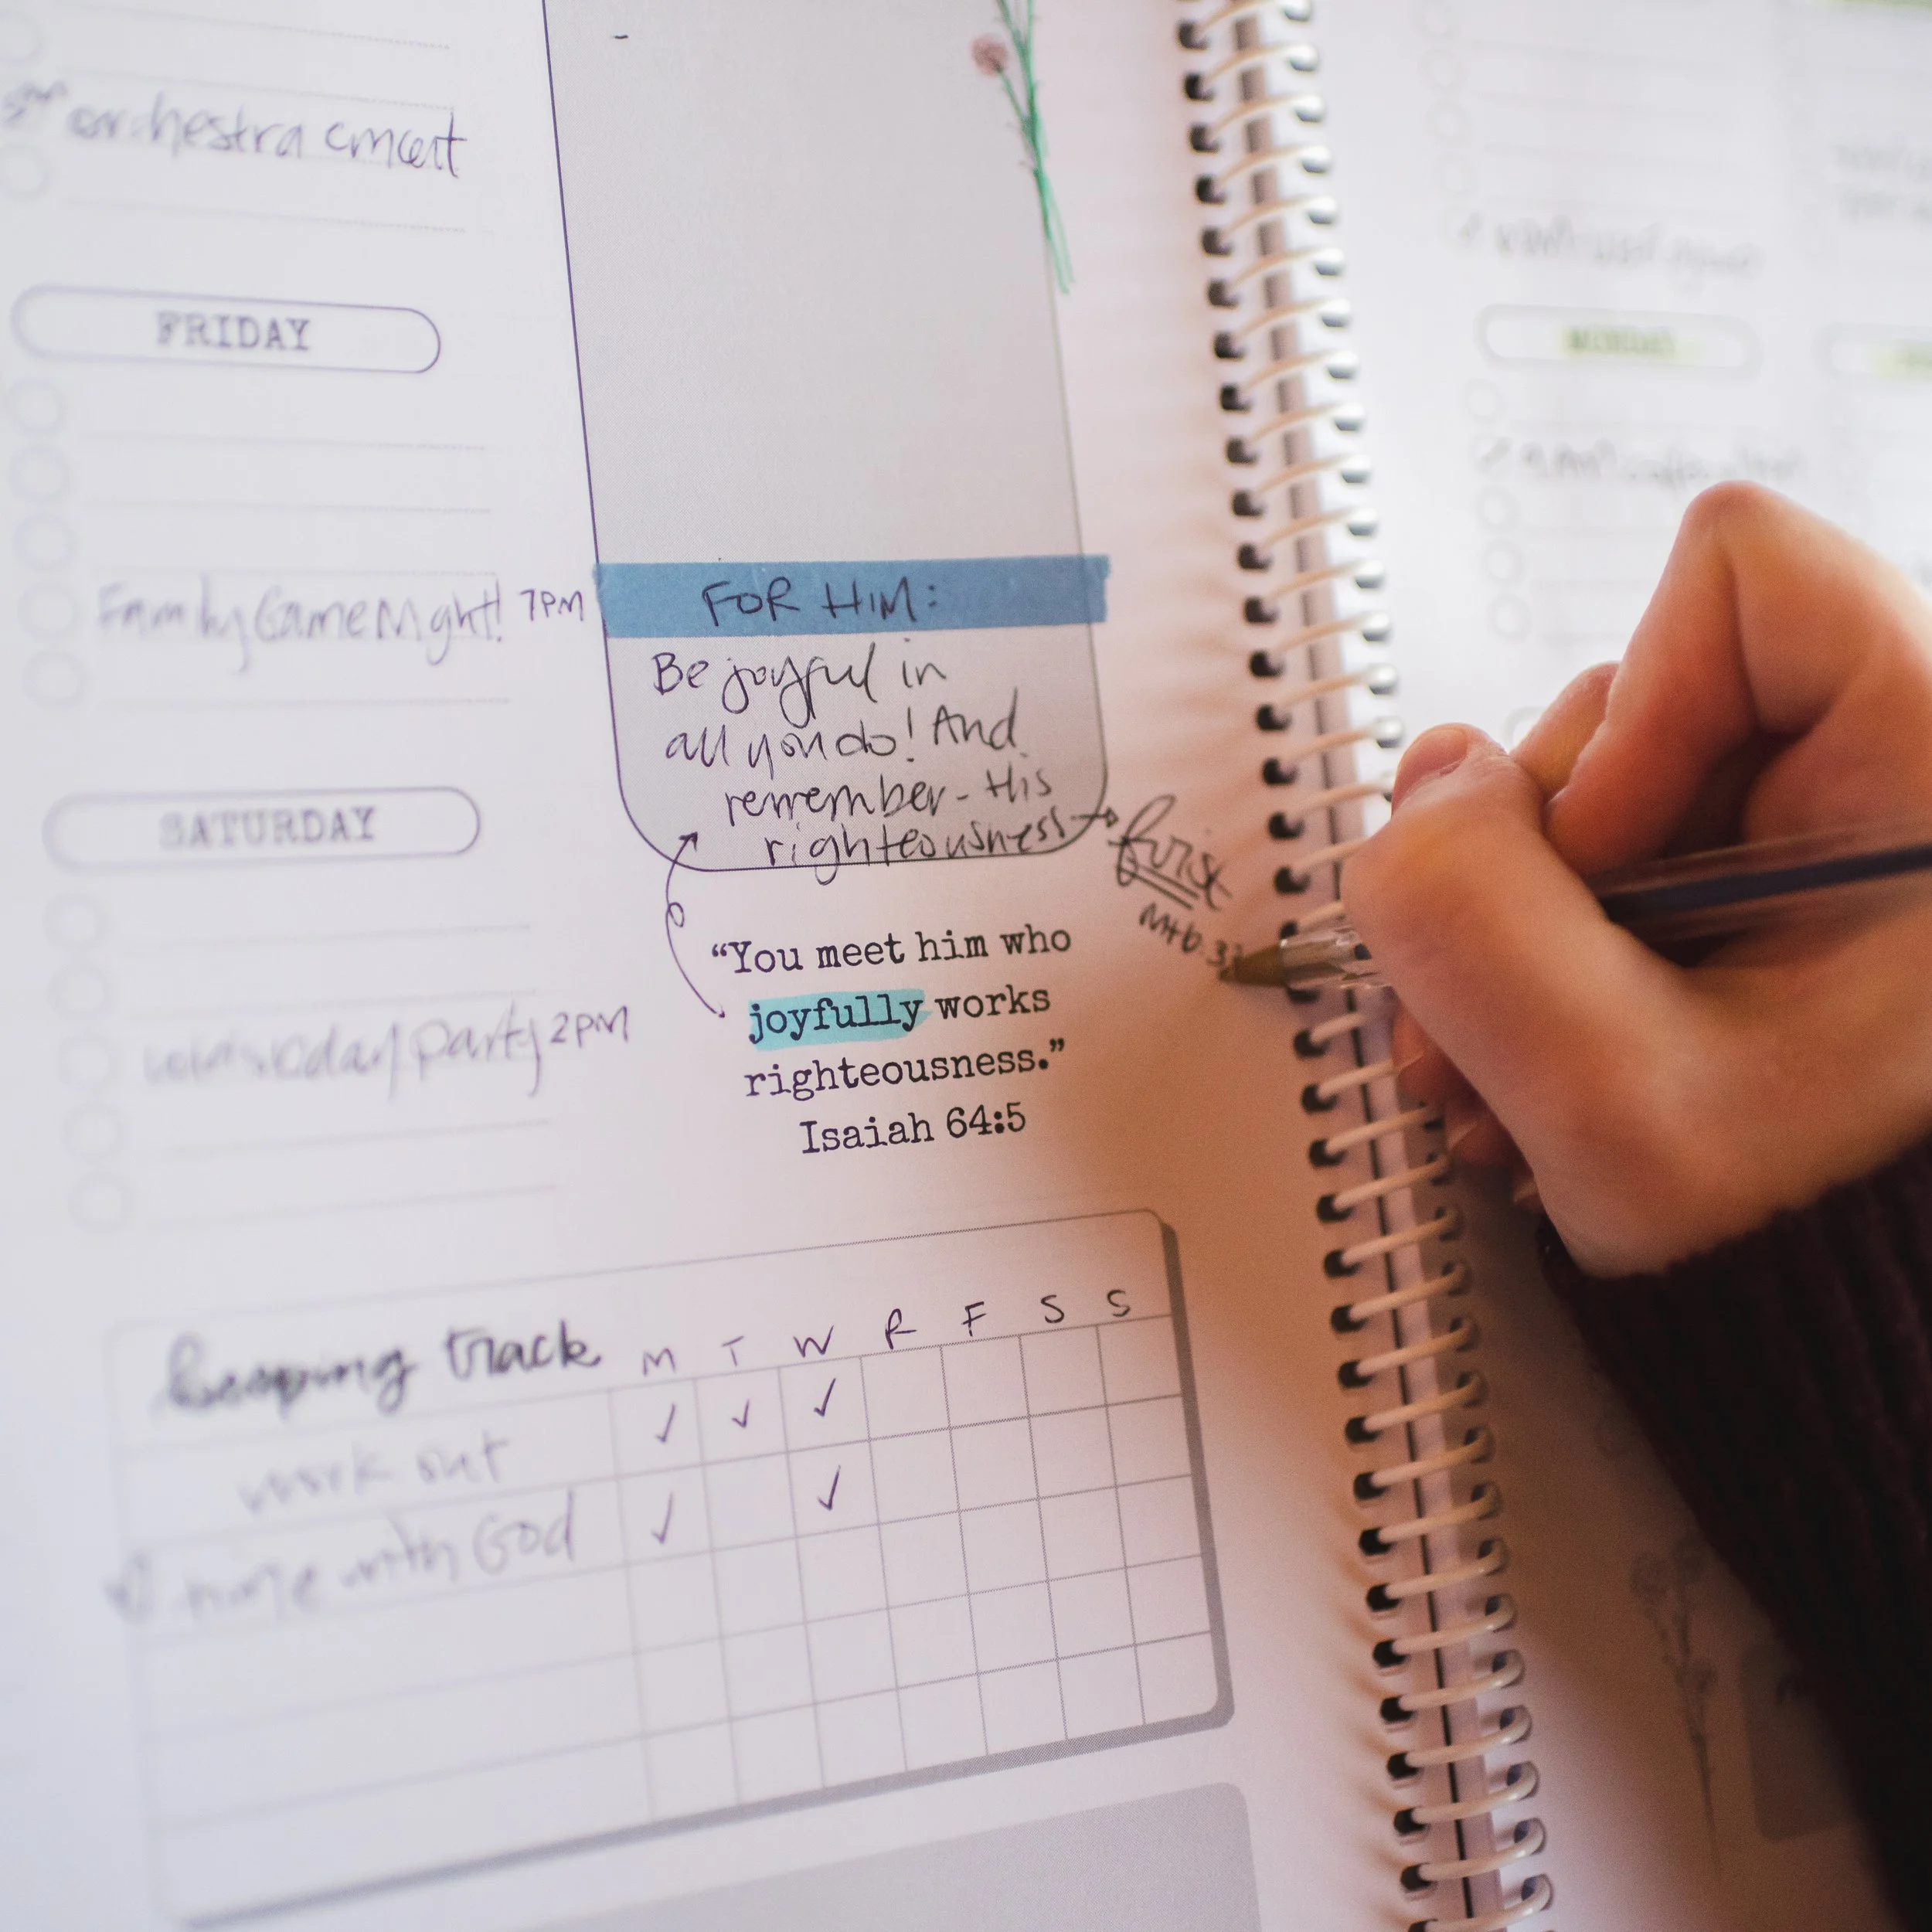 orchestra concert
FRIDAY
Family Game Night! 7PM
SATURDAY
party 2PM
FOR HIM:
Be joyful in
all you do! And
remember - His
righteousness → first
Mt 6:33
“You meet him who
joyfully works
righteousness.”
Isaiah 64:5
keeping track M T W R F S S
work out ✓ ✓ ✓
time with God ✓ ✓
MONDAY